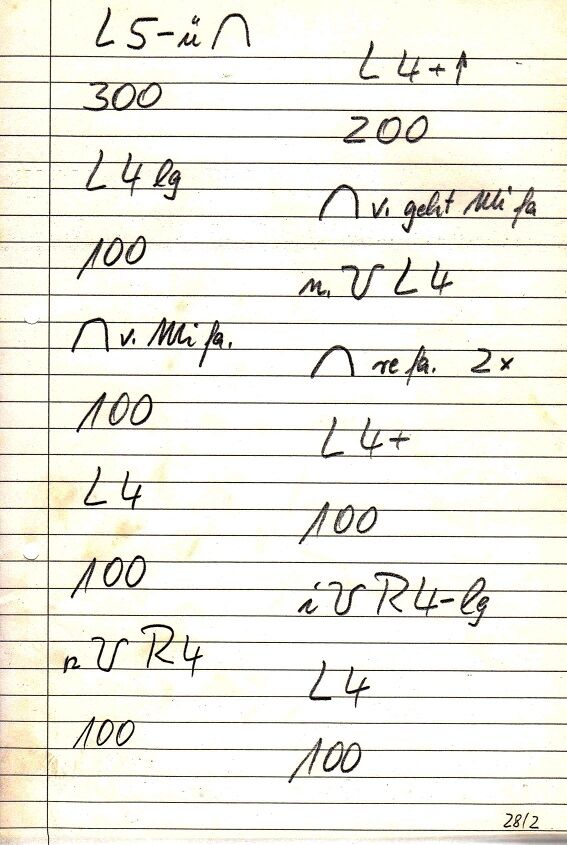 L 5-ü ∩
300
L 4 lg
100
∩ v. Mi fa.
100
L 4
100
n ʊ R4
100
L 4+↑
200
∩ v. geht Mi fa
n. ʊ L 4
∩ re fa. 2x
L 4+
100
i ʊ R 4-lg
L 4
100
28/2